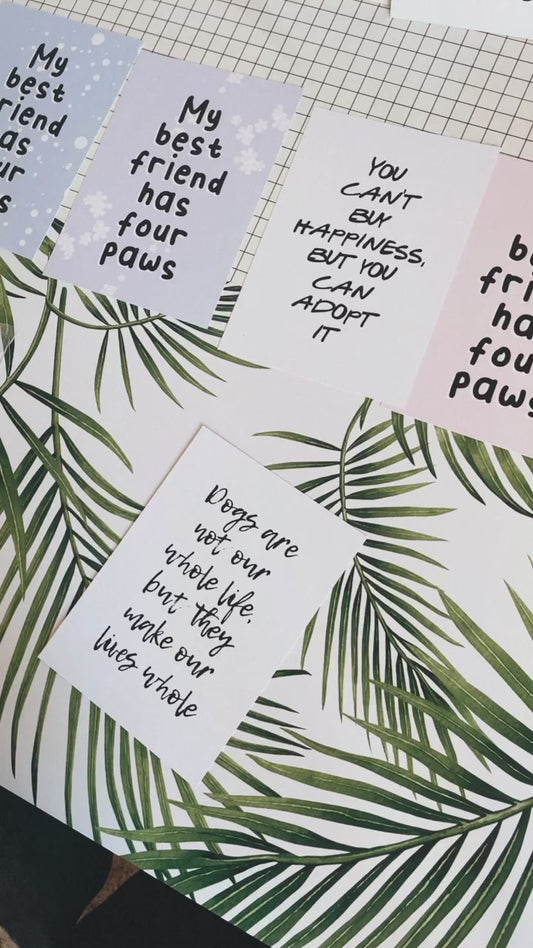 My
best
riend
as
ur
s
My
best
friend
has
four
paws
YOU
CAN'T
BUY
HAPPINESS,
BUT YOU
CAN
ADOPT
IT
be
fri
ha
fou
paws
Dogs are
not our
whole life,
but they
make our
lives whole